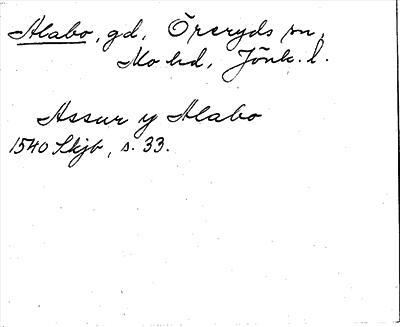 Alabo, gd, Öreryds sn,
Mo hd, Jönk. l.
Assur y Alabo
1540 Skjb, s. 33.